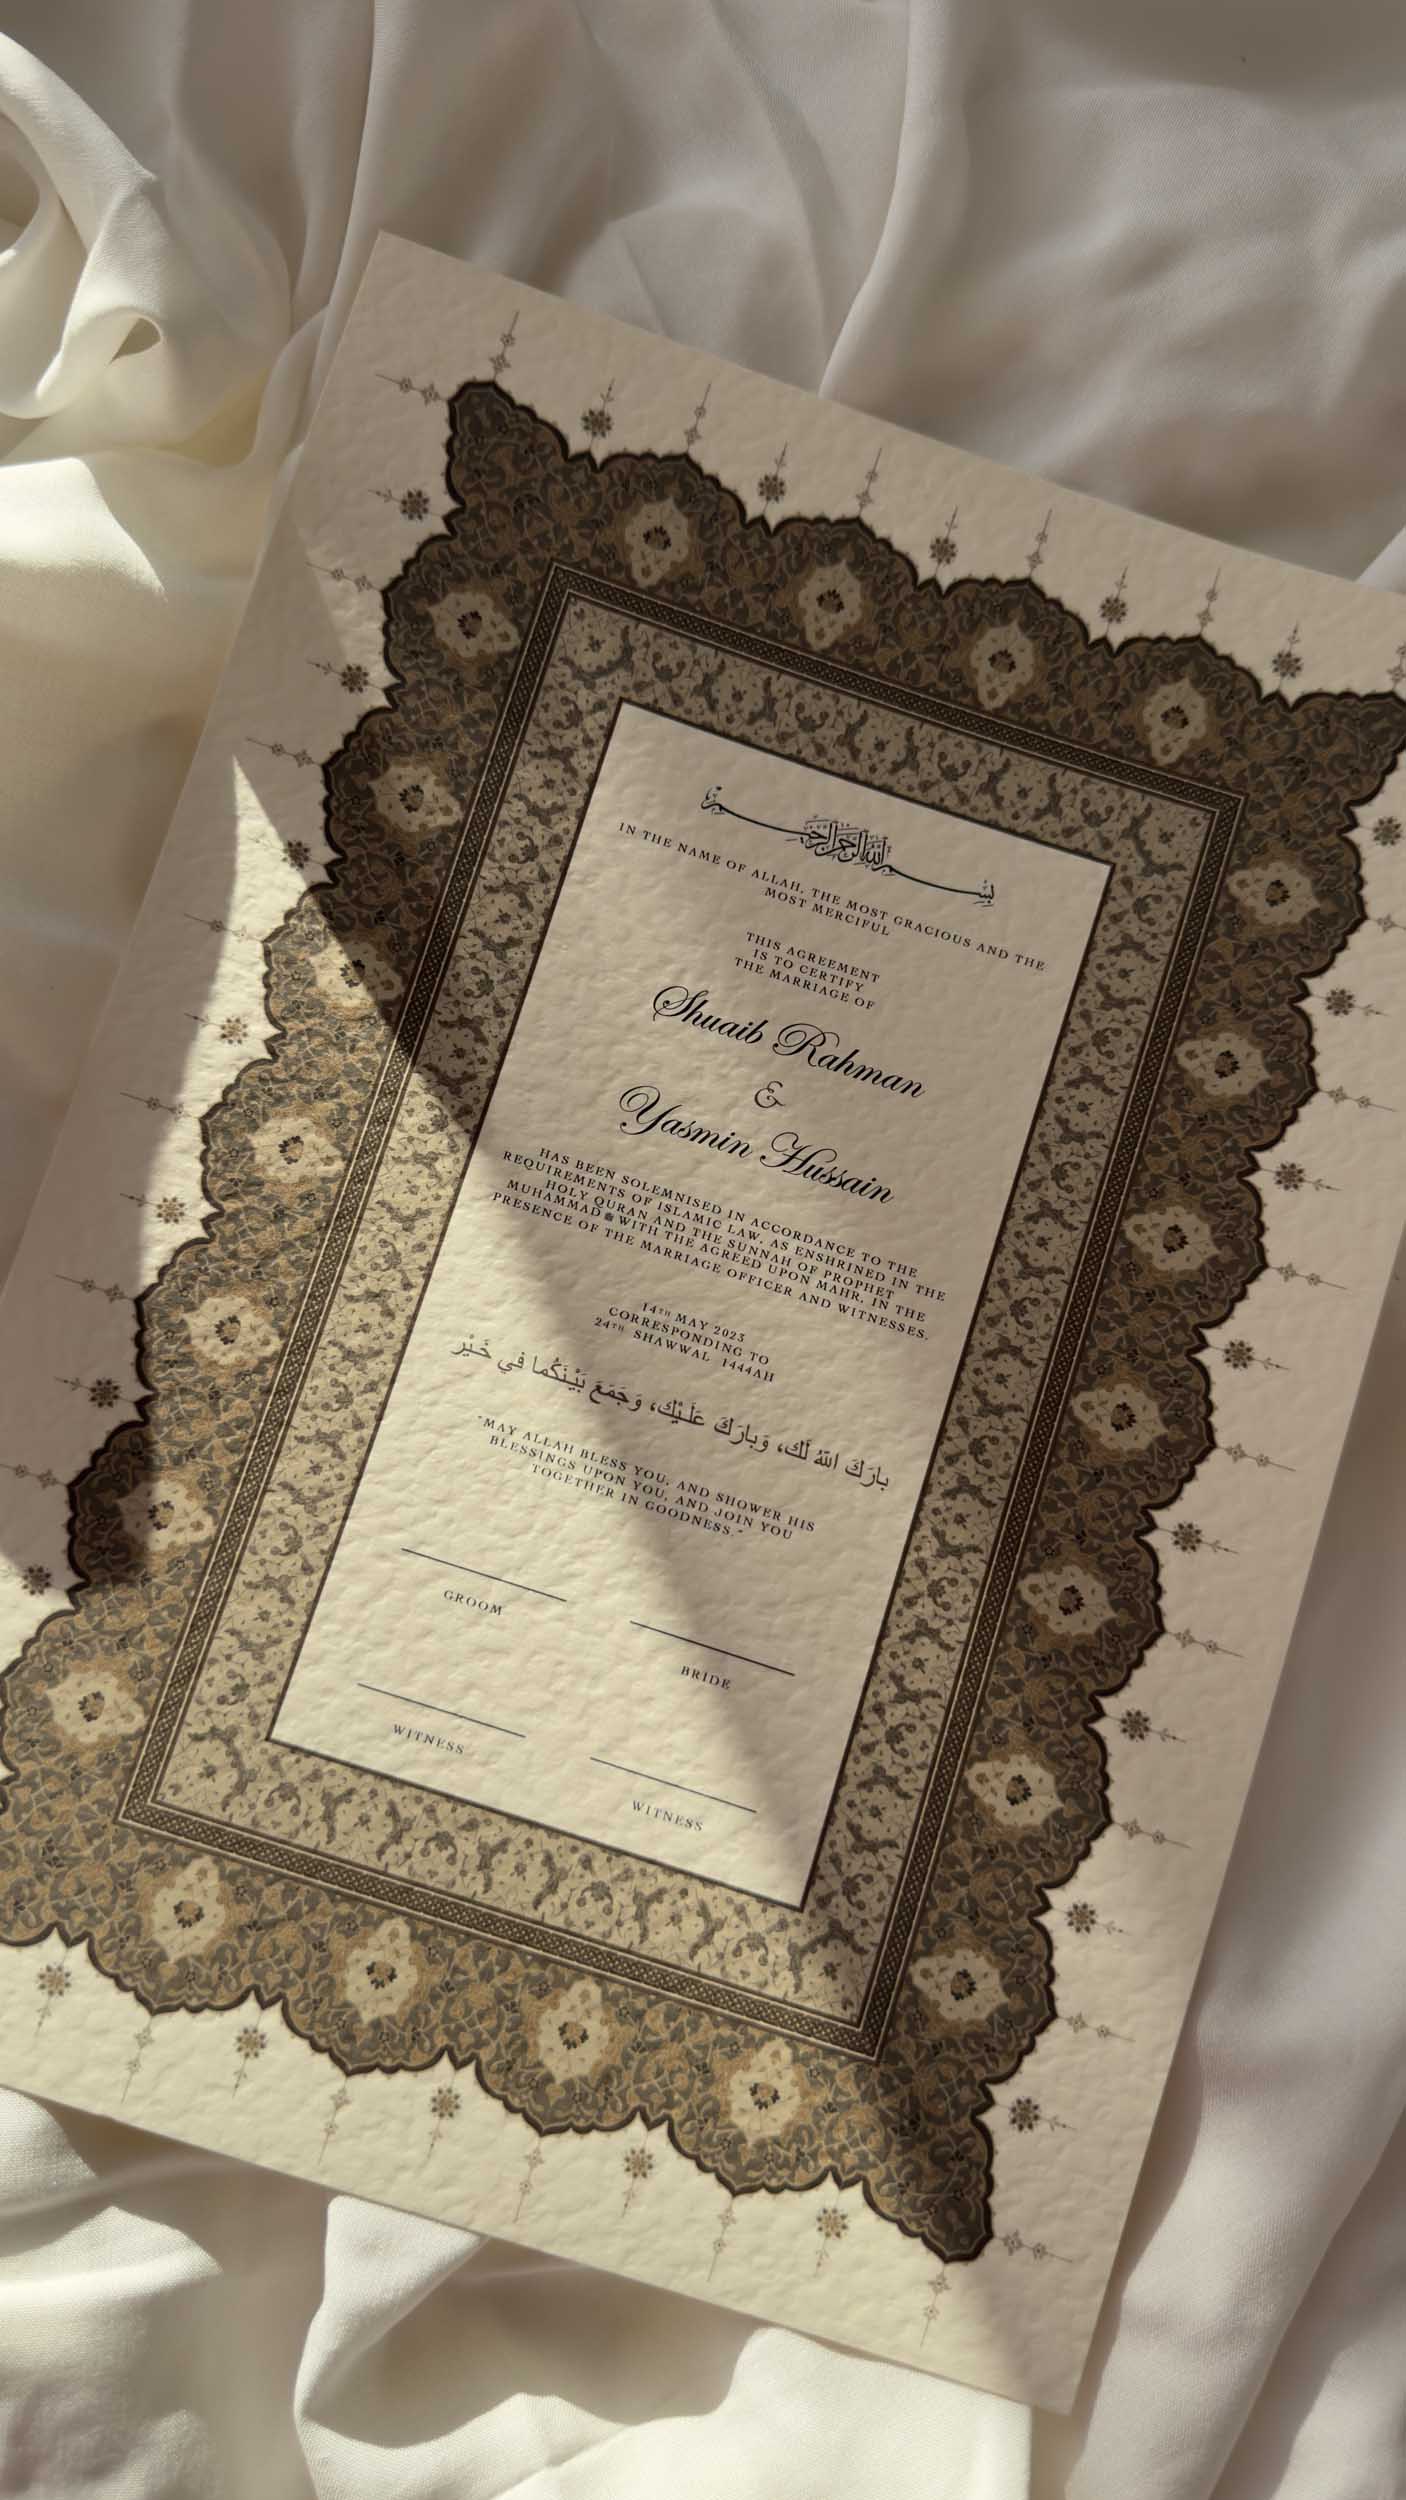 بسم الله الرحمن الرحيم
IN THE NAME OF ALLAH, THE MOST GRACIOUS AND THE
MOST MERCIFUL
THIS AGREEMENT
IS TO CERTIFY
THE MARRIAGE OF
Shuaib Rahman
&
Yasmin Hussain
HAS BEEN SOLEMNISED IN ACCORDANCE TO THE
REQUIREMENTS OF ISLAMIC LAW, AS ENSHRINED IN THE
HOLY QURAN AND THE SUNNAH OF PROPHET
MUHAMMAD ﷺ WITH THE AGREED UPON MAHR, IN THE
PRESENCE OF THE MARRIAGE OFFICER AND WITNESSES.
14TH MAY 2023
CORRESPONDING TO
24TH SHAWWAL 1444AH
بارَكَ اللهُ لَك، وَبارَكَ عَلَـيْك، وَجَمَعَ بَيْـنَكُما في خَـيْر
"MAY ALLAH BLESS YOU, AND SHOWER HIS
BLESSINGS UPON YOU, AND JOIN YOU
TOGETHER IN GOODNESS."
GROOM
BRIDE
WITNESS
WITNESS